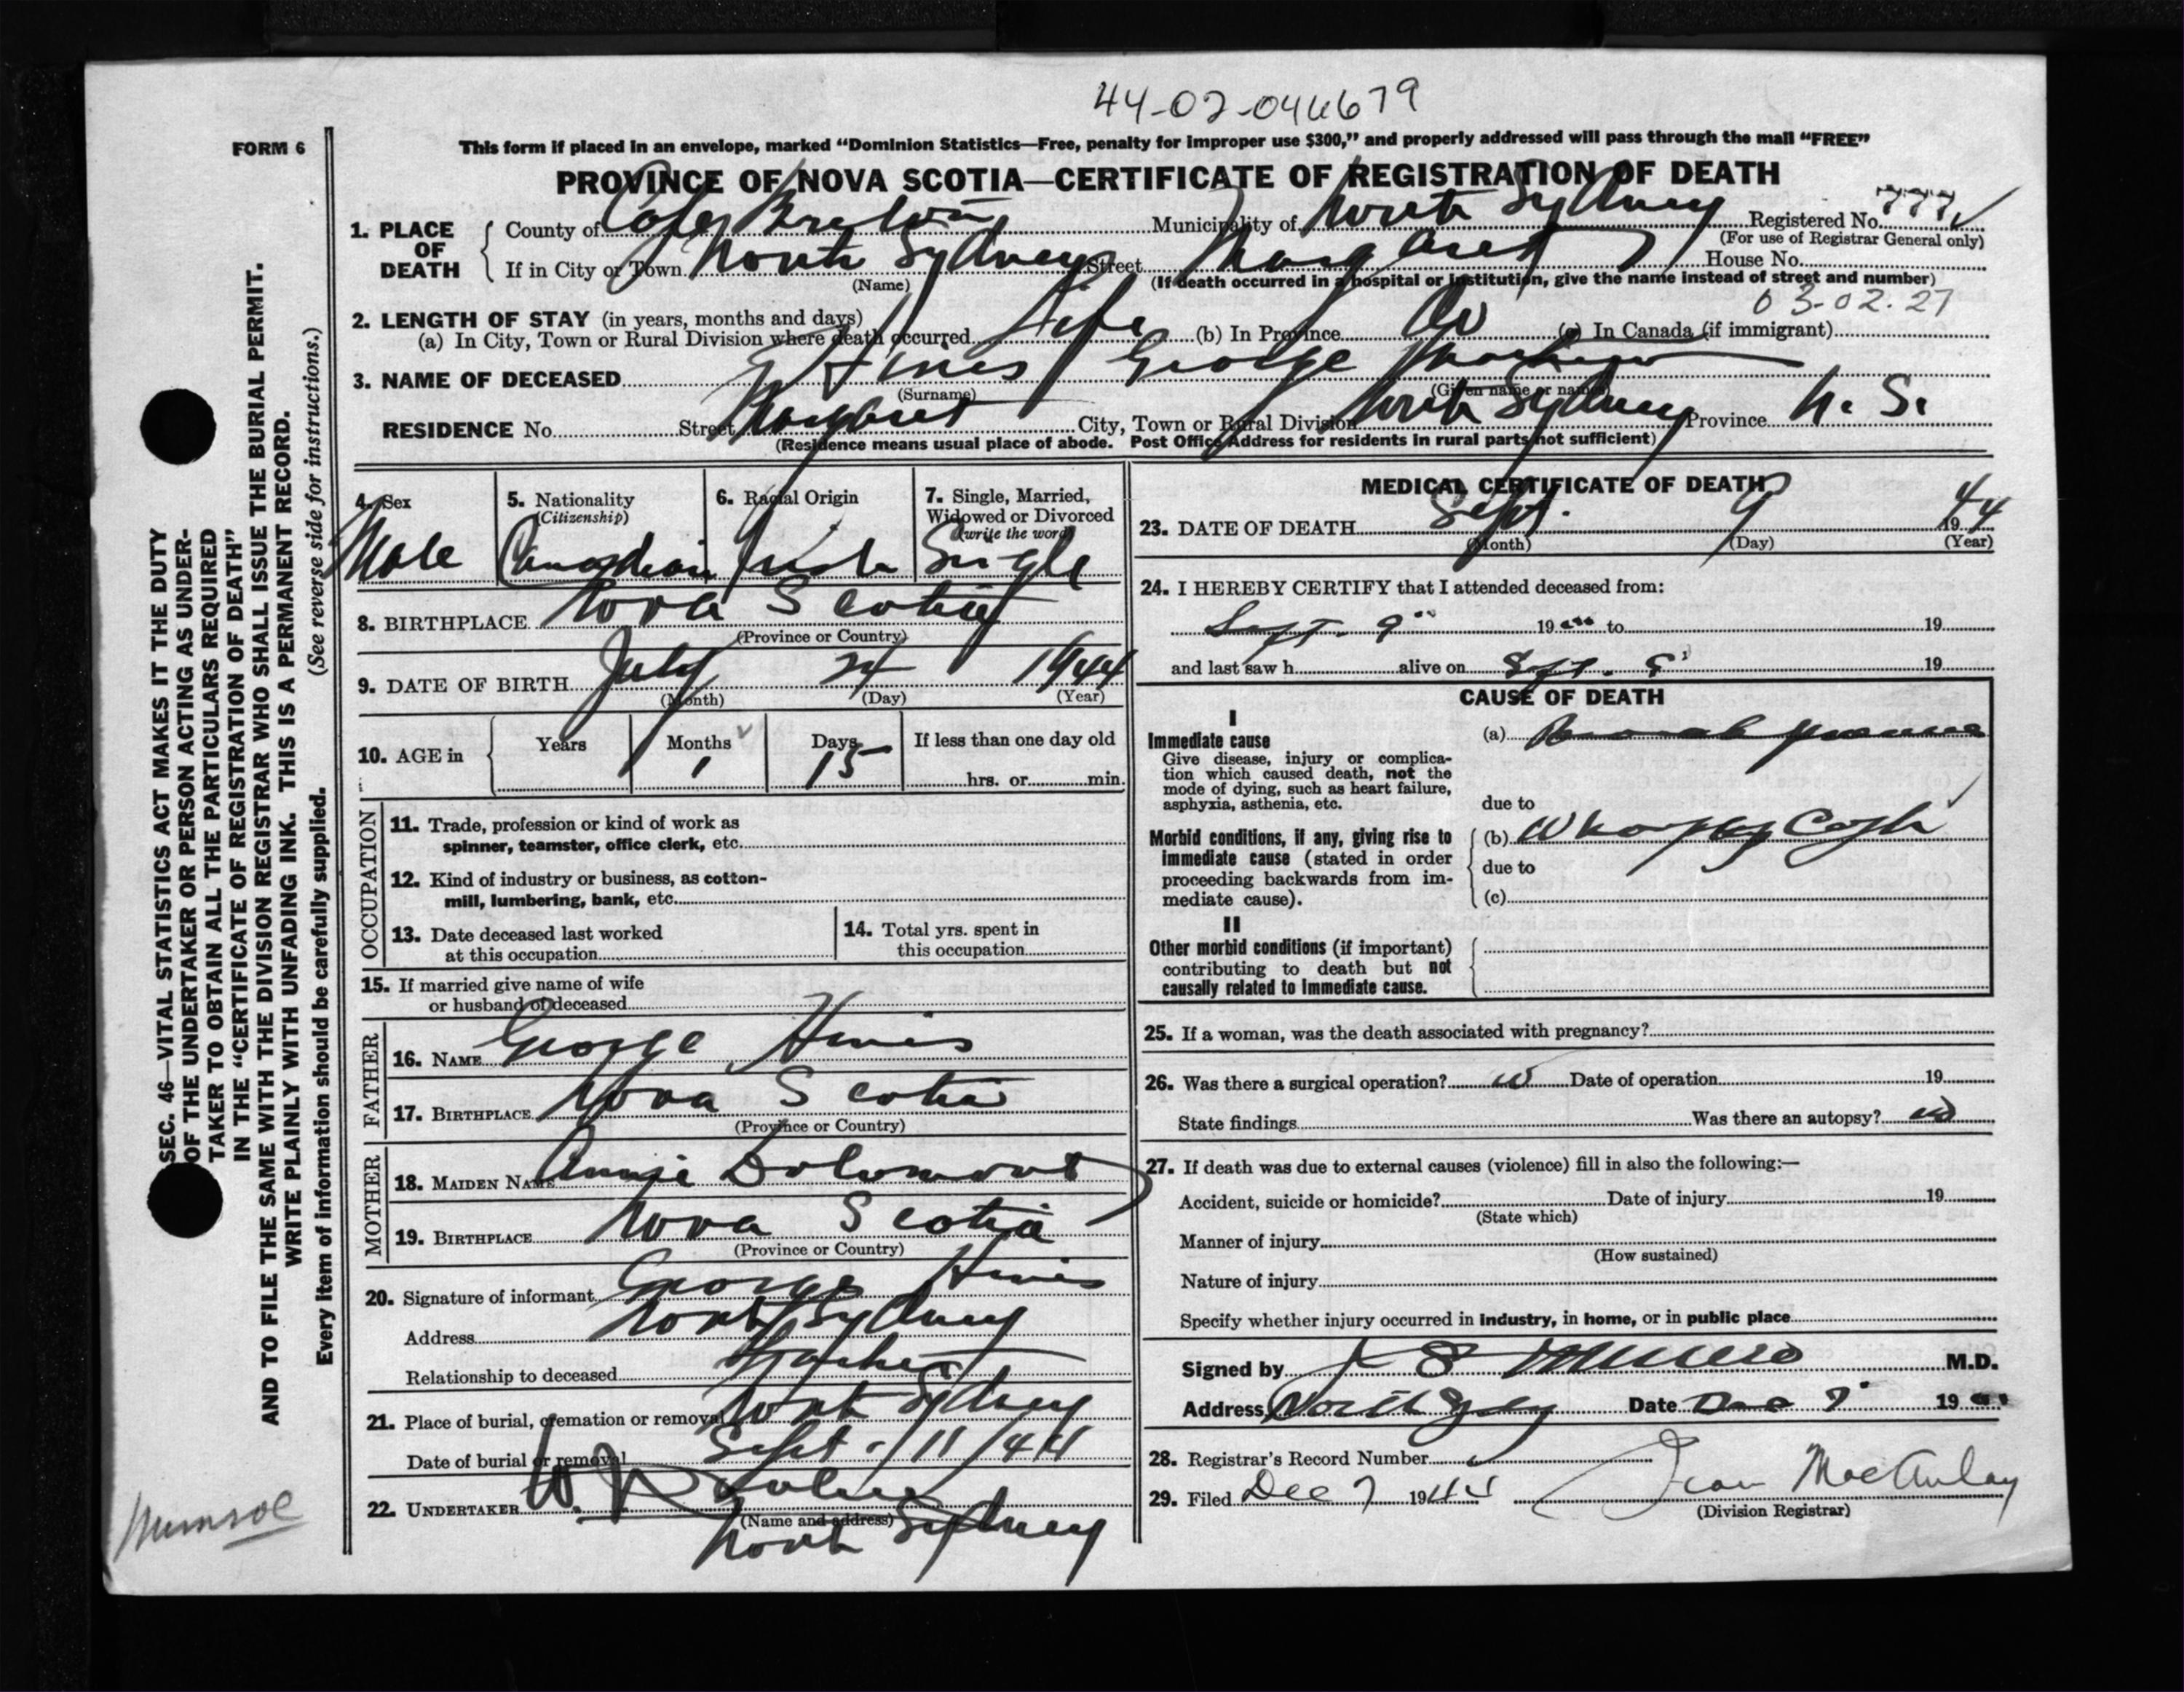 44-02-046679
FORM 6
This form if placed in an envelope, marked “Dominion Statistics—Free, penalty for improper use $300,” and properly addressed will pass through the mail “FREE”
PROVINCE OF NOVA SCOTIA—CERTIFICATE OF REGISTRATION OF DEATH
1. PLACE OF DEATH County of Cape Breton Municipality of North Sydney Registered No. 777
(For use of Registrar General only)
If in City or Town North Sydney Street Margaret House No.
(Name) (If death occurred in a hospital or institution, give the name instead of street and number)
03-02.27
2. LENGTH OF STAY (in years, months and days)
(a) In City, Town or Rural Division where death occurred Life (b) In Province (c) In Canada (if immigrant)
3. NAME OF DECEASED Hines George
(Surname) (Given name or names)
RESIDENCE No. Street Margaret City, Town or Rural Division North Sydney Province N. S.
(Residence means usual place of abode. Post Office Address for residents in rural parts not sufficient)
4. Sex 5. Nationality (Citizenship) 6. Racial Origin 7. Single, Married, Widowed or Divorced (write the word)
Male Canadian Irish Single
8. BIRTHPLACE Nova Scotia
(Province or Country)
9. DATE OF BIRTH July 24 1944
(Month) (Day) (Year)
10. AGE in Years Months Days If less than one day old
1 15 hrs. or min.
OCCUPATION
11. Trade, profession or kind of work as
spinner, teamster, office clerk, etc.
12. Kind of industry or business, as cotton-
mill, lumbering, bank, etc.
13. Date deceased last worked
at this occupation
14. Total yrs. spent in
this occupation
15. If married give name of wife
or husband of deceased
FATHER
16. NAME George Hines
17. BIRTHPLACE Nova Scotia
(Province or Country)
MOTHER
18. MAIDEN NAME Annie Dolomont
19. BIRTHPLACE Nova Scotia
(Province or Country)
20. Signature of informant George Hines
Address North Sydney
Relationship to deceased Father
21. Place of burial, cremation or removal North Sydney
Date of burial or removal Sept. 11/44
22. UNDERTAKER W.
(Name and address)
North Sydney
MEDICAL CERTIFICATE OF DEATH
23. DATE OF DEATH Sept. 9 1944
(Month) (Day) (Year)
24. I HEREBY CERTIFY that I attended deceased from:
Sept. 9 19 to 19
and last saw h alive on Sept. 19
CAUSE OF DEATH
I
Immediate cause
Give disease, injury or complica-
tion which caused death, not the
mode of dying, such as heart failure,
asphyxia, asthenia, etc.
(a)
due to
Morbid conditions, if any, giving rise to
immediate cause (stated in order
proceeding backwards from im-
mediate cause).
(b) Whooping Cough
due to
(c)
II
Other morbid conditions (if important)
contributing to death but not
causally related to immediate cause.
25. If a woman, was the death associated with pregnancy?
26. Was there a surgical operation? no Date of operation 19
State findings Was there an autopsy? no
27. If death was due to external causes (violence) fill in also the following:—
Accident, suicide or homicide? Date of injury 19
(State which)
Manner of injury
(How sustained)
Nature of injury
Specify whether injury occurred in industry, in home, or in public place
Signed by M.D.
Address North Sydney Date Dec 7 19
28. Registrar's Record Number
29. Filed Dec 7 1944 Jean MacAulay
(Division Registrar)
SEC. 46—VITAL STATISTICS ACT MAKES IT THE DUTY
OF THE UNDERTAKER OR PERSON ACTING AS UNDER-
TAKER TO OBTAIN ALL THE PARTICULARS REQUIRED
IN THE “CERTIFICATE OF REGISTRATION OF DEATH”
AND TO FILE THE SAME WITH THE DIVISION REGISTRAR WHO SHALL ISSUE THE BURIAL PERMIT.
WRITE PLAINLY WITH UNFADING INK. THIS IS A PERMANENT RECORD.
Every item of information should be carefully supplied. (See reverse side for instructions.)
Munroe